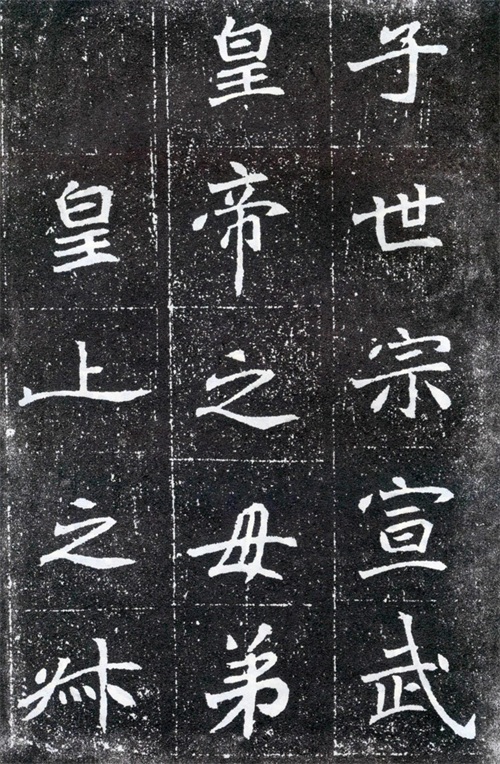 子世宗宣武
皇帝之母弟
皇上之𠦑